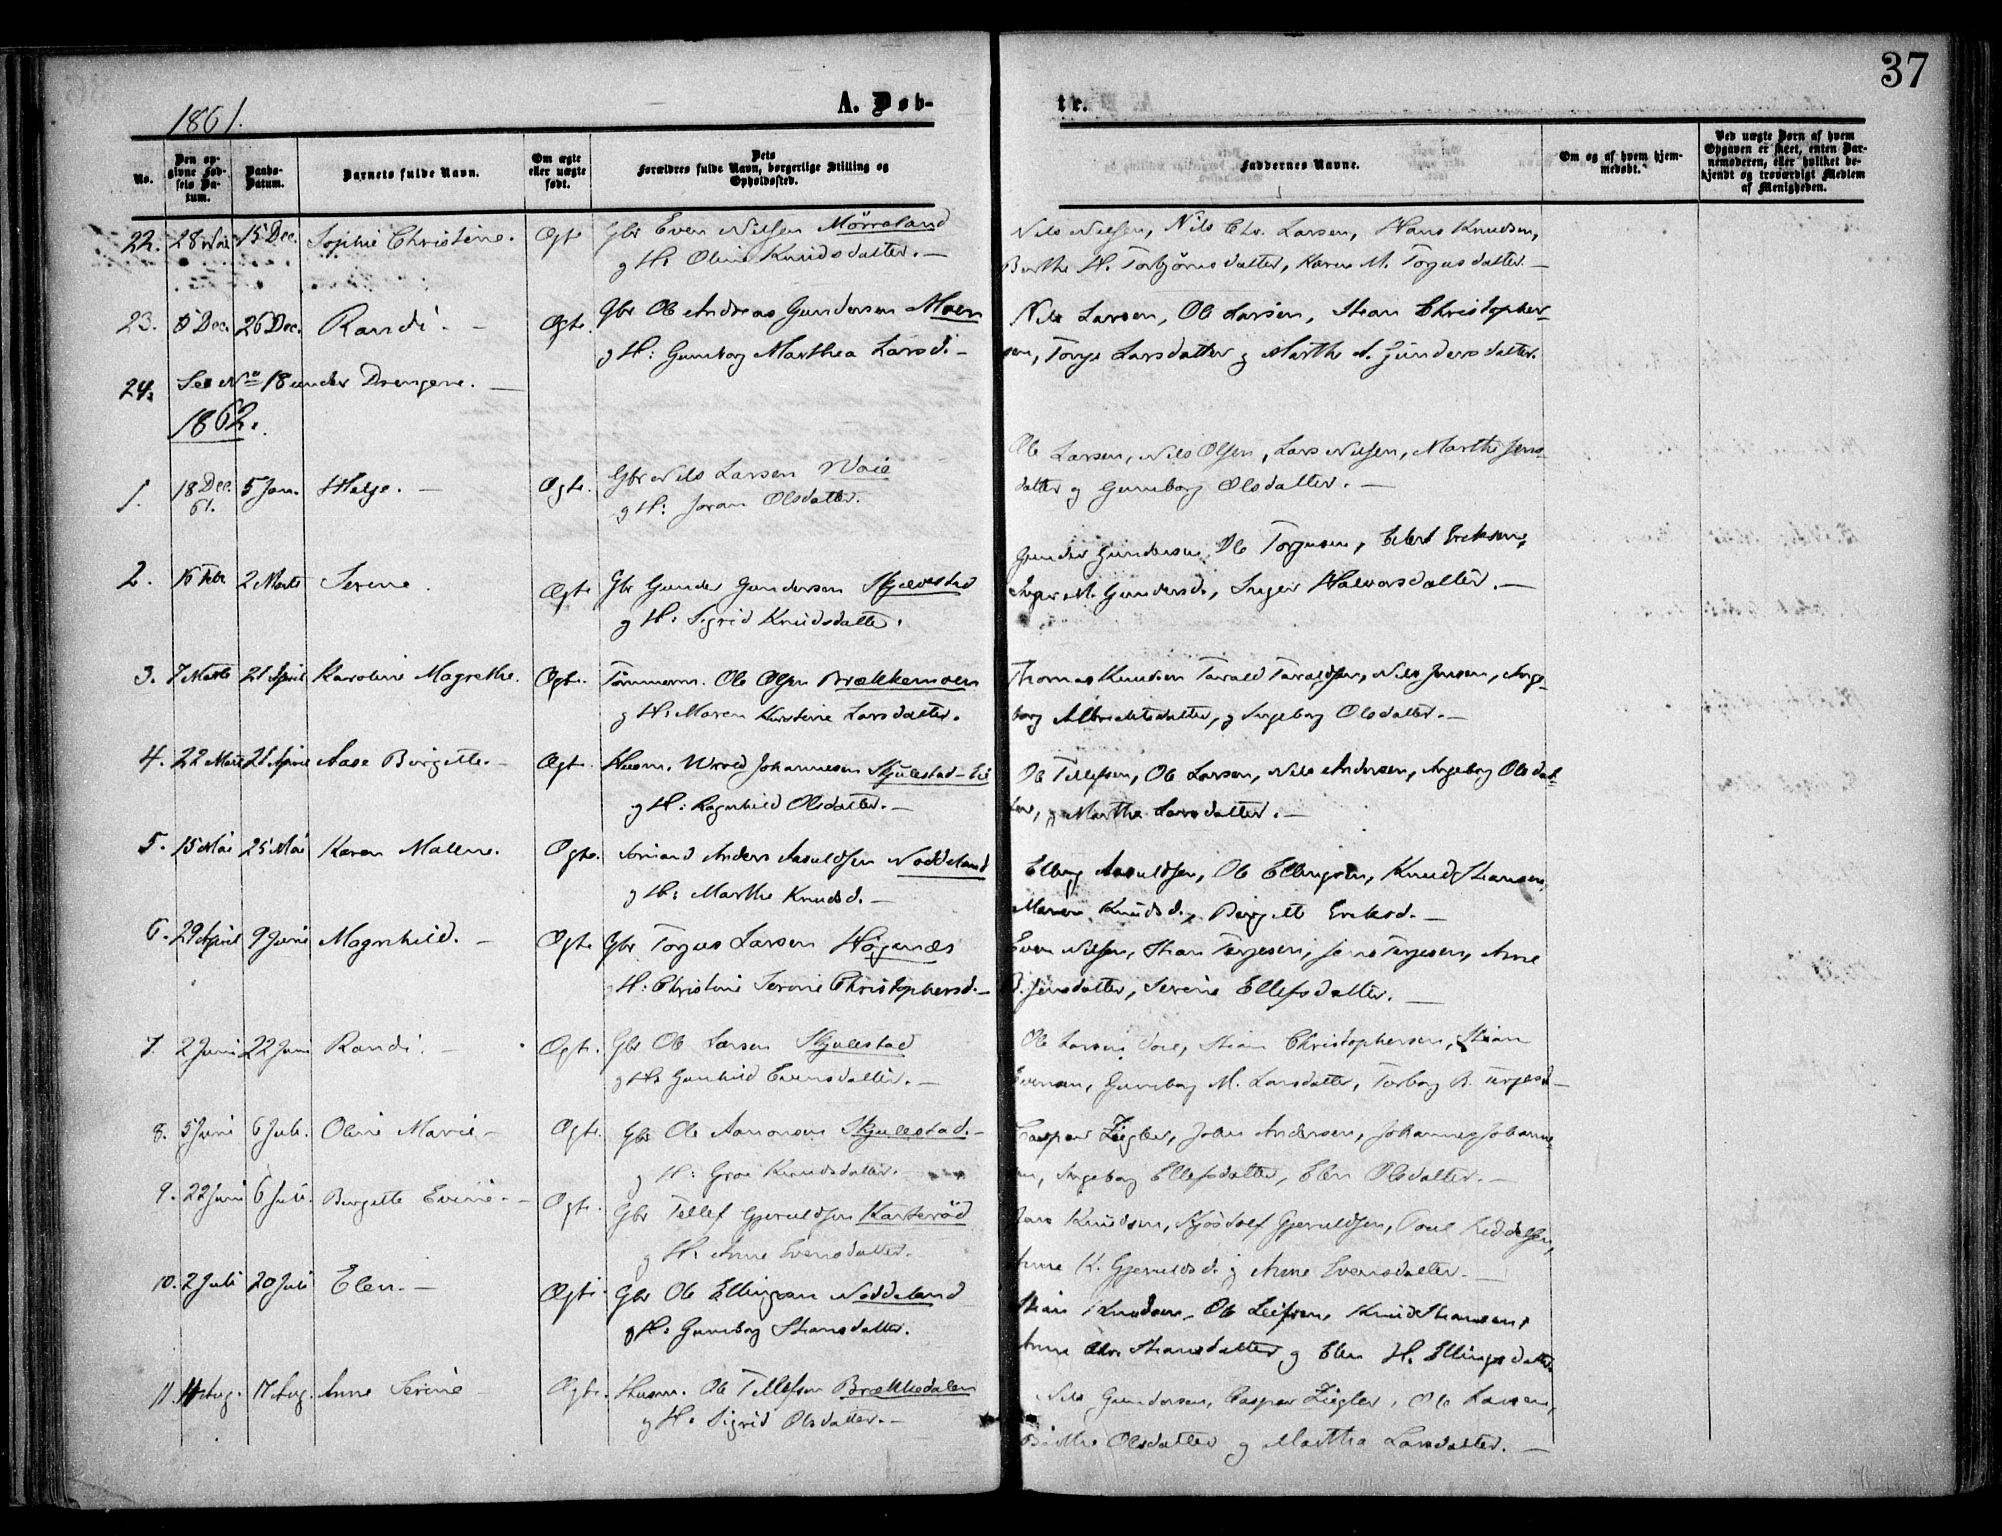 37
1861.
A. Døb-
te.
No.
Den op-
givne Fød-
sels Da-
tum.
Daabs-
Datum.
Barnets fulde Navn.
Om ægte
eller uægte
født.
Dets
Forældres fulde Navn, borgerlige Stilling og
Opholdssted.
Faddernes Navne.
Om og af hvem hjem-
medøbt.
Ved uægte Børn af hvem
Opgaven er skeet, enten Bar-
nemoderen, eller hvilket be-
kjendt og troværdigt Medlem
af Menigheden.
22. 15 Dec. Sophie Christine. Ægte Gbr Even Nilsen
og H: Oline Knudsdatter. —
Nils Nilsen, Nils Chr. Larsen, Hans Knudsen,
Berthe H. Torbjørnsdatter, Karen M. Torjusdatter —
23. 8 Dec. 26 Dec. Randi. — Ægte. Gbr Ole Andreas Gundersen Moen
og H: Gunborg Marthea Larsd. —
Nils Larsen, Ole Larsen, Stian Christopher-
sen, Torge Larsdatter og Marthe A. Gundersdatter.
24. See No 18 under Drengene. —
1862.
1. 18 Dec. 61. 5 Jan. Helje. — Ægte. Gbr Nils Larsen Voie
og H: Joran Olsdatter.
Ole Larsen, Nils Olsen, Lars Nilsen, Marthe Jens-
datter og Gunborg Olsdatter. —
2. 2 Marts Serine. Ægte Gbr Gunder Gundersen Skjulestad
og H: Sigrid Knudsdatter.
Gunder Gundersen, Ole Torjusen, Eilert Eriksen,
Inger M. Gundersd., Inger Halvorsdatter. —
3. 7 Marts 21 April Karoline Magrethe. Ægte. Tømmerm. Ole Olsen Brækkemoen
og H: Maren Kirstine Larsdatter.
Thomas Knudsen Tarald Taraldsen, Nils Jensen, Inge-
borg Albrektsdatter, og Ingeborg Olsdatter. —
4. 22 Marts 21 April Aase Birgitte. — Ægte. Husm. Johannesen Skjulestad-
og H: Ragnhild Olsdatter. —
Ole Tellefsen, Ole Larsen, Nils Andersen, Ingeborg Olsdat-
ter, og Marthe Larsdatter. —
5. 15 Mai 25 Mai Karen Malene. Ægte. Sømand Anders Aasuldsen Noddeland
og H: Marthe Knudsd. —
Elling Aasuldsen, Ole Ellingsen, Knud Stiansen,
Maren Knudsd., Birgitte Eriksd. —
6. 29 April 9 Juni Magnhild. — Ægte Gbr Torjus Larsen Høgenæs
og H: Christine Serine Christophersd. —
Even Nilsen, Stian Terjesen, Jens Terjesen, Anne
Jensdatter, Serine Ellefsdatter. —
7. 2 Juni 22 Juni Randi. — Ægte. Gbr Ole Larsen Skjulestad
og H: Gunhild Evensdatter. —
Ole Larsen Voie, Stian Christophersen, Stian
Evensen, Gunborg M. Larsdatter, Torborg B. Terjesd —
8. 5 Juni 6 Juli. Oline Marie — Ægte. Gbr Ole Aanonsen Skjulestad. —
og H: Groe Knudsdatter. —
Caspar Ziegler, John Andersen, Johannes Johanne-
sen, Ingeborg Ellefsdatter, Elen Olsdatter. —
9. 22 Juni 6 Juli. Birgitte Evine. — Ægte. Gbr Tellef Gjeruldsen Karterød
og H: Anne Evensdatter. —
Jens Knudsen, Gjeruldsen,
Anne K. Gjeruldsd. og Anne Evensdatter. —
10. 2 Juli 20 Juli Elen. — Ægte. Gbr Ole Ellingsen Noddeland
og H: Gunborg Stiansdatter.
Stian Knudsen, Ole Leifsen, Knud Stiansen,
Anne Chr. Stiansdatter og Elen H. Ellingsdatter
11. 11 Aug. 17 Aug. Anne Serine — Ægte. Husm. Ole Tellefsen Brækkedalen
og H: Sigrid Olsdatter. —
Nils Gundersen, Caspar Ziegler, Ole Larsen,
Berthe Olsdatter og Martha Larsdatter. —